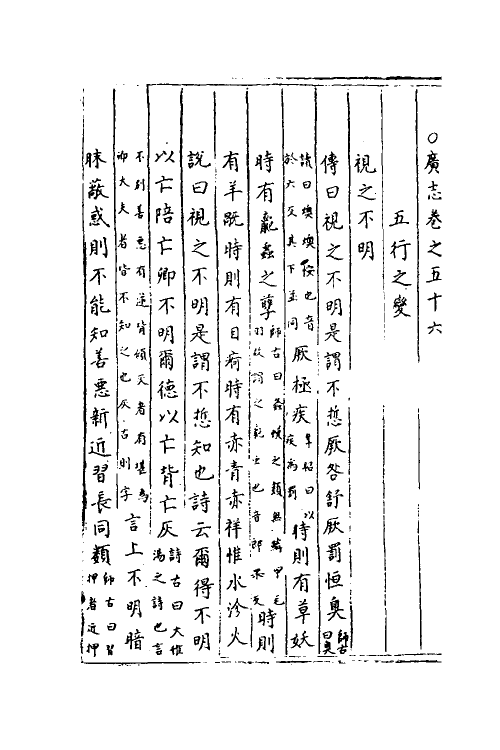 ○廣志卷之五十六
五行之變
視之不明
傳曰視之不明是謂不悊厥咎舒厥罰恒奥師古曰奥
讀曰燠燠煖也音於六反其下並同厥極疾韋昭曰以疾為罰時則有草妖
時有蠃蟲之孽師古曰螽螟之類無鱗甲毛羽故謂之蠃虫也音郎果反時則
有羊旤時則有目痾時有赤眚赤祥惟水沴火
說曰視之不明是謂不悊知也詩云爾得不明
以亡陪亡卿不明爾德以亡背亡仄詩古曰大惟湯之詩也言
不别善惡有逆背傾仄者有堪為卿大夫者皆不知之也仄古則字言上不明暗
昧蔽惑則不能知善悪新近習長同類師古曰習押者近押